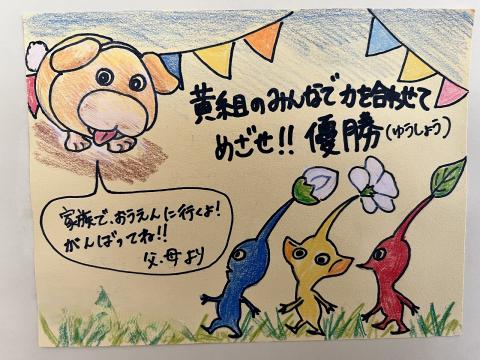 黄組のみんなで力を合わせて
めざせ!!優勝(ゆうしょう)
家族で、おうえんに行くよ!
がんばってね!!
父、母より